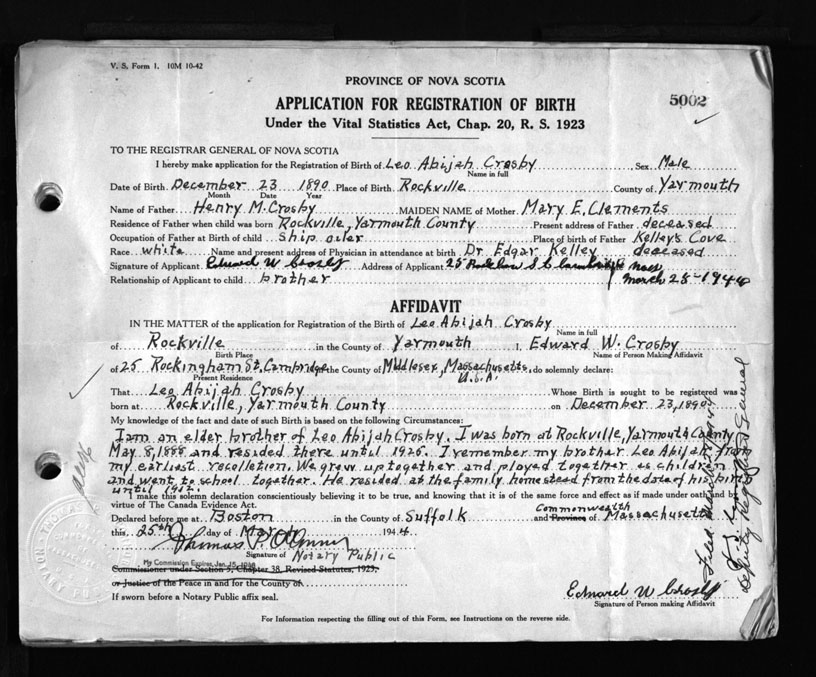 V. S. Form 1. 10M 10-42
PROVINCE OF NOVA SCOTIA
APPLICATION FOR REGISTRATION OF BIRTH
5002
Under the Vital Statistics Act, Chap. 20, R. S. 1923
TO THE REGISTRAR GENERAL OF NOVA SCOTIA
I hereby make application for the Registration of Birth of Leo Abijah Crosby Sex Male
Name in full
Date of Birth December 23 1890 Place of Birth Rockville County of Yarmouth
Month Date Year
Name of Father Henry M. Crosby MAIDEN NAME of Mother Mary E. Clements
Residence of Father when child was born Rockville, Yarmouth County Present address of Father deceased
Occupation of Father at Birth of child Ship Place of birth of Father Kelley's Cove
Race white Name and present address of Physician in attendance at birth Dr Edgar Kelley deceased
Signature of Applicant Edward W Crosby Address of Applicant 25 Mass
Relationship of Applicant to child brother March 25-1944
AFFIDAVIT
IN THE MATTER of the application for Registration of the Birth of Leo Abijah Crosby
Name in full
of Rockville in the County of Yarmouth I, Edward W. Crosby
Birth Place Name of Person Making Affidavit
of 25 Rockingham St. Cambridge the County of Middlesex, Massachusetts, do solemnly declare:
Present Residence U.S.A.
That Leo Abijah Crosby Whose Birth is sought to be registered was
born at Rockville, Yarmouth County on December 23, 1890
My knowledge of the fact and date of such Birth is based on the following Circumstances:
I am an elder brother of Leo Abijah Crosby. I was born at Rockville, Yarmouth County
May 8, 1888 and resided there until 1925. I remember my brother Leo Abijah from
my earliest recolletion. We grew up together and played together as children
and went to school together. He resided at the family homestead from the date of his birth
until 1912.
I make this solemn declaration conscientiously believing it to be true, and knowing that it is of the same force and effect as if made under oath and by
virtue of The Canada Evidence Act.
Commonwealth
Declared before me at Boston in the County of Suffolk and Province of Massachusetts
this 25th day of March 1944
Thomas
Signature of Notary Public
My Commission Expires Jan. 15,
Commissioner under Section 5, Chapter 38, Revised Statutes, 1923,
or Justice of the Peace in and for the County of
If sworn before a Notary Public affix seal.
Edward W Crosby
Signature of Person making Affidavit
For Information respecting the filling out of this Form, see Instructions on the reverse side.
Deputy Registrar General